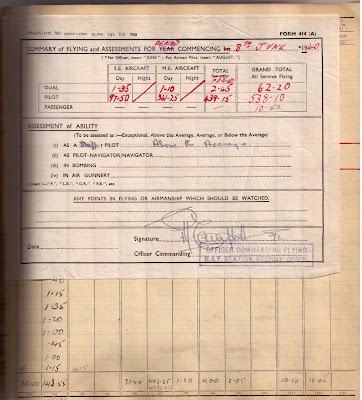 FORM 414 (A)
SUMMARY of FLYING and ASSESSMENTS FOR YEAR PERIOD COMMENCING 8TH JUNE 1940
[*For Officer, insert "JUNE"; For Airman Pilot, insert "AUGUST."]
S.E. AIRCRAFT M.E. AIRCRAFT TOTAL GRAND TOTAL
Day Night Day Night All Service Flying
DUAL 1-35 1-10 2-45 62-20
PILOT 97-50 341-25 439-15 538-10
PASSENGER — — — — — 10-50
ASSESSMENT of ABILITY
(To be assessed as :—Exceptional, Above the Average, Average, or Below the Average)
(i) AS A Staff † PILOT Above the Average
(ii) AS PILOT-NAVIGATOR/NAVIGATOR
(iii) IN BOMBING
(iv) IN AIR GUNNERY
ANY POINTS IN FLYING OR AIRMANSHIP WHICH SHOULD BE WATCHED.
Signature
Date
Officer Commanding
OFFICER COMMANDING FLYING
R.A.F. STATION, STORMY DOWN
1-15
1-35
1-20
1-00
1-45
1-00
1-15
31-40 1-50 4-00 2-05 10-10